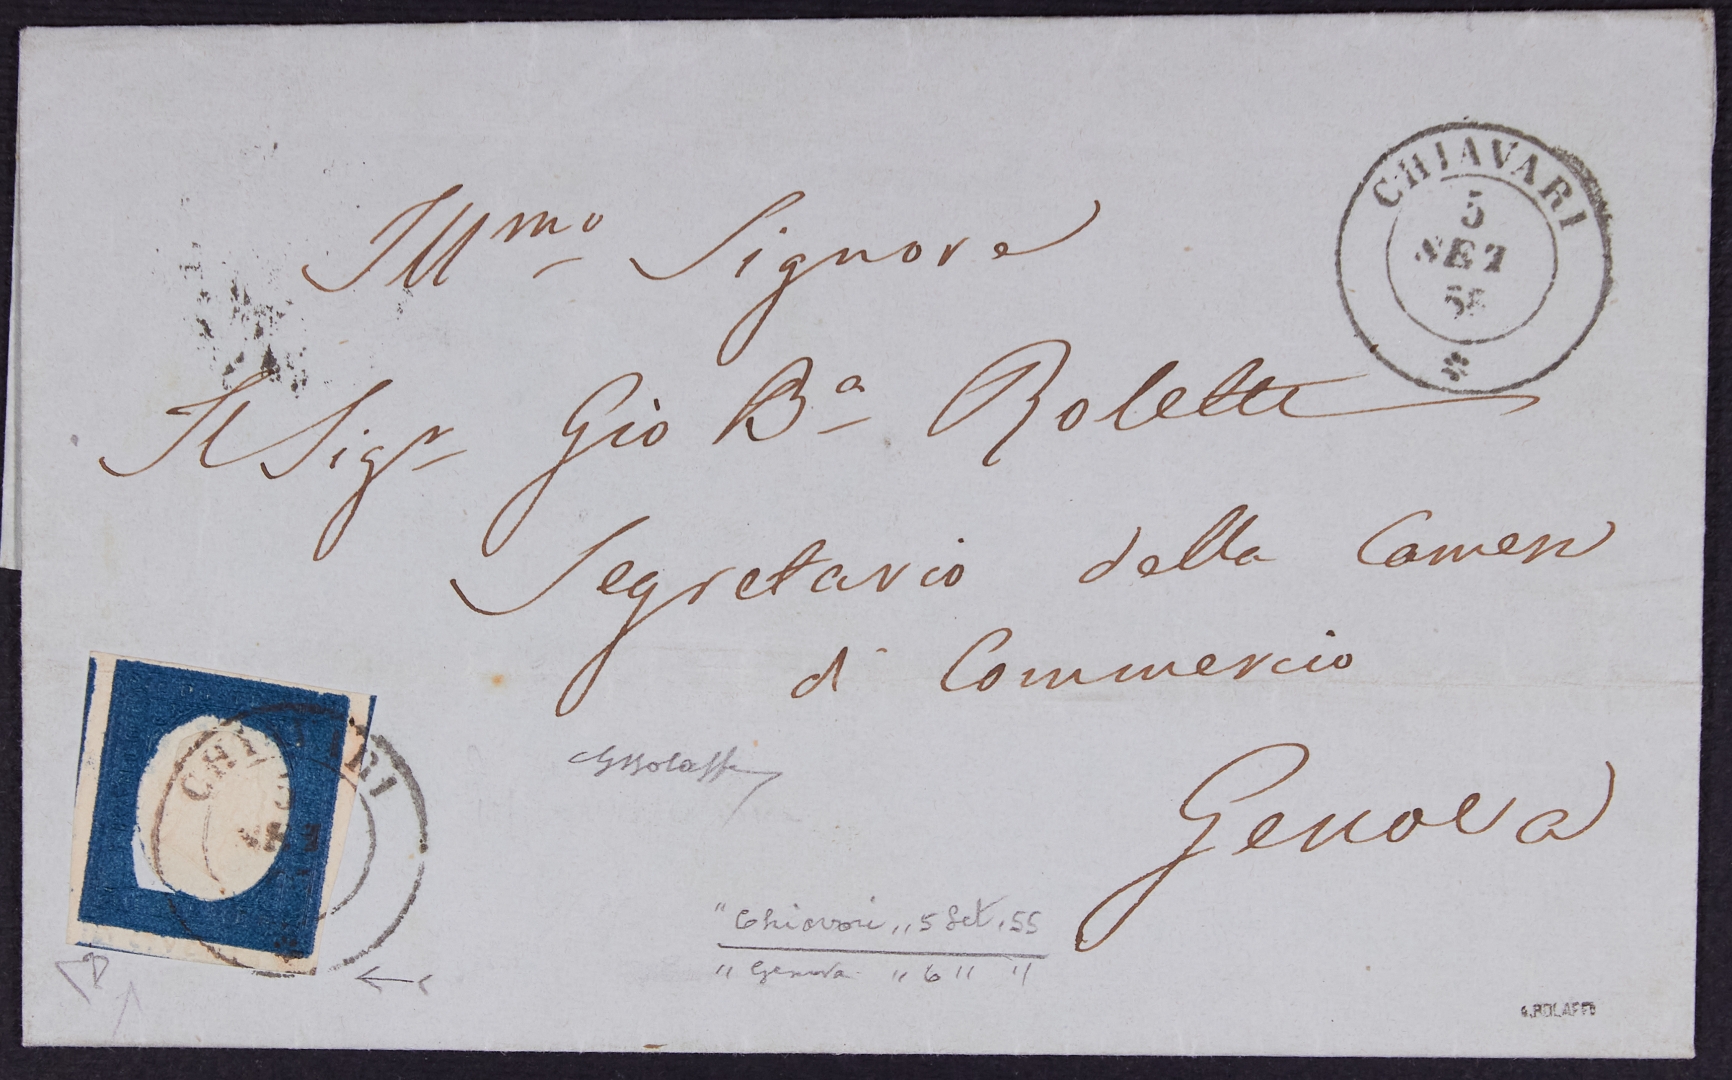 CHIAVARI
5
SET
Ill.mo Signore
Il Sigr Gio Ba Roletti
Segretario della Camera
di Commercio
Genova
CHIAVARI
SET
"Chiavari" "5 Set. 55
" Genova " 6 " "
A. BOLAFFI